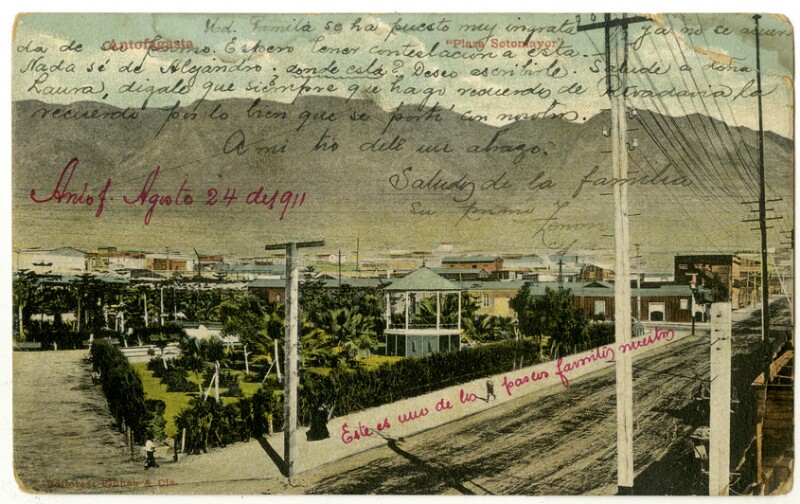 Ud. Fermila se ha puesto muy ingrata ya no se acuer
da de su primo. Espero tener contestación a esta.
Antofagasta
"Plaza Sotomayor"
Nada sé de Alejandro. donde esta? Deseo escribirle. Salude a doña
Laura, digale que siempre que hago recuerdos de Rivadavia la
recuerdo por lo bien que se portó con nosotros.
A mi tio dele un abrazo.
Saludos de la familia
su primo
Antof. Agosto 24 de 1911
Este es uno de los paseos favoritos nuestros
Editores:
& Cia.